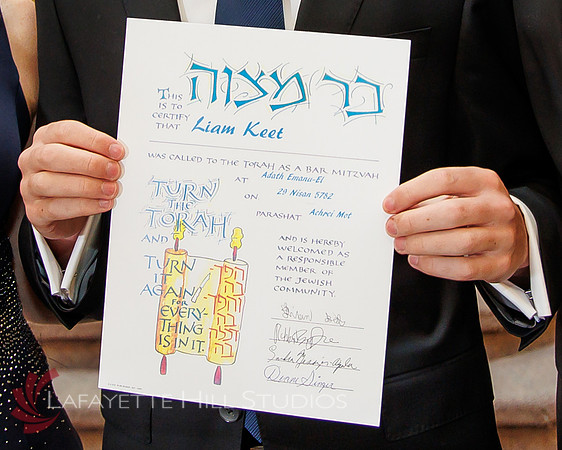 בר מצוה
THIS
IS TO
CERTIFY
THAT Liam Keet
WAS CALLED TO THE TORAH AS A BAR MITZVAH
AT Adath Emanu-El
ON 29 Nisan 5782
PARASHAT Achrei Mot
TURN
THE
TORAH
AND
TURN
IT
AGAIN
FOR
EVERY-
THING
IS IN IT.
AND IS HEREBY
WELCOMED AS
A RESPONSIBLE
MEMBER OF
THE JEWISH
COMMUNITY.
LAFAYETTE HILL STUDIOS